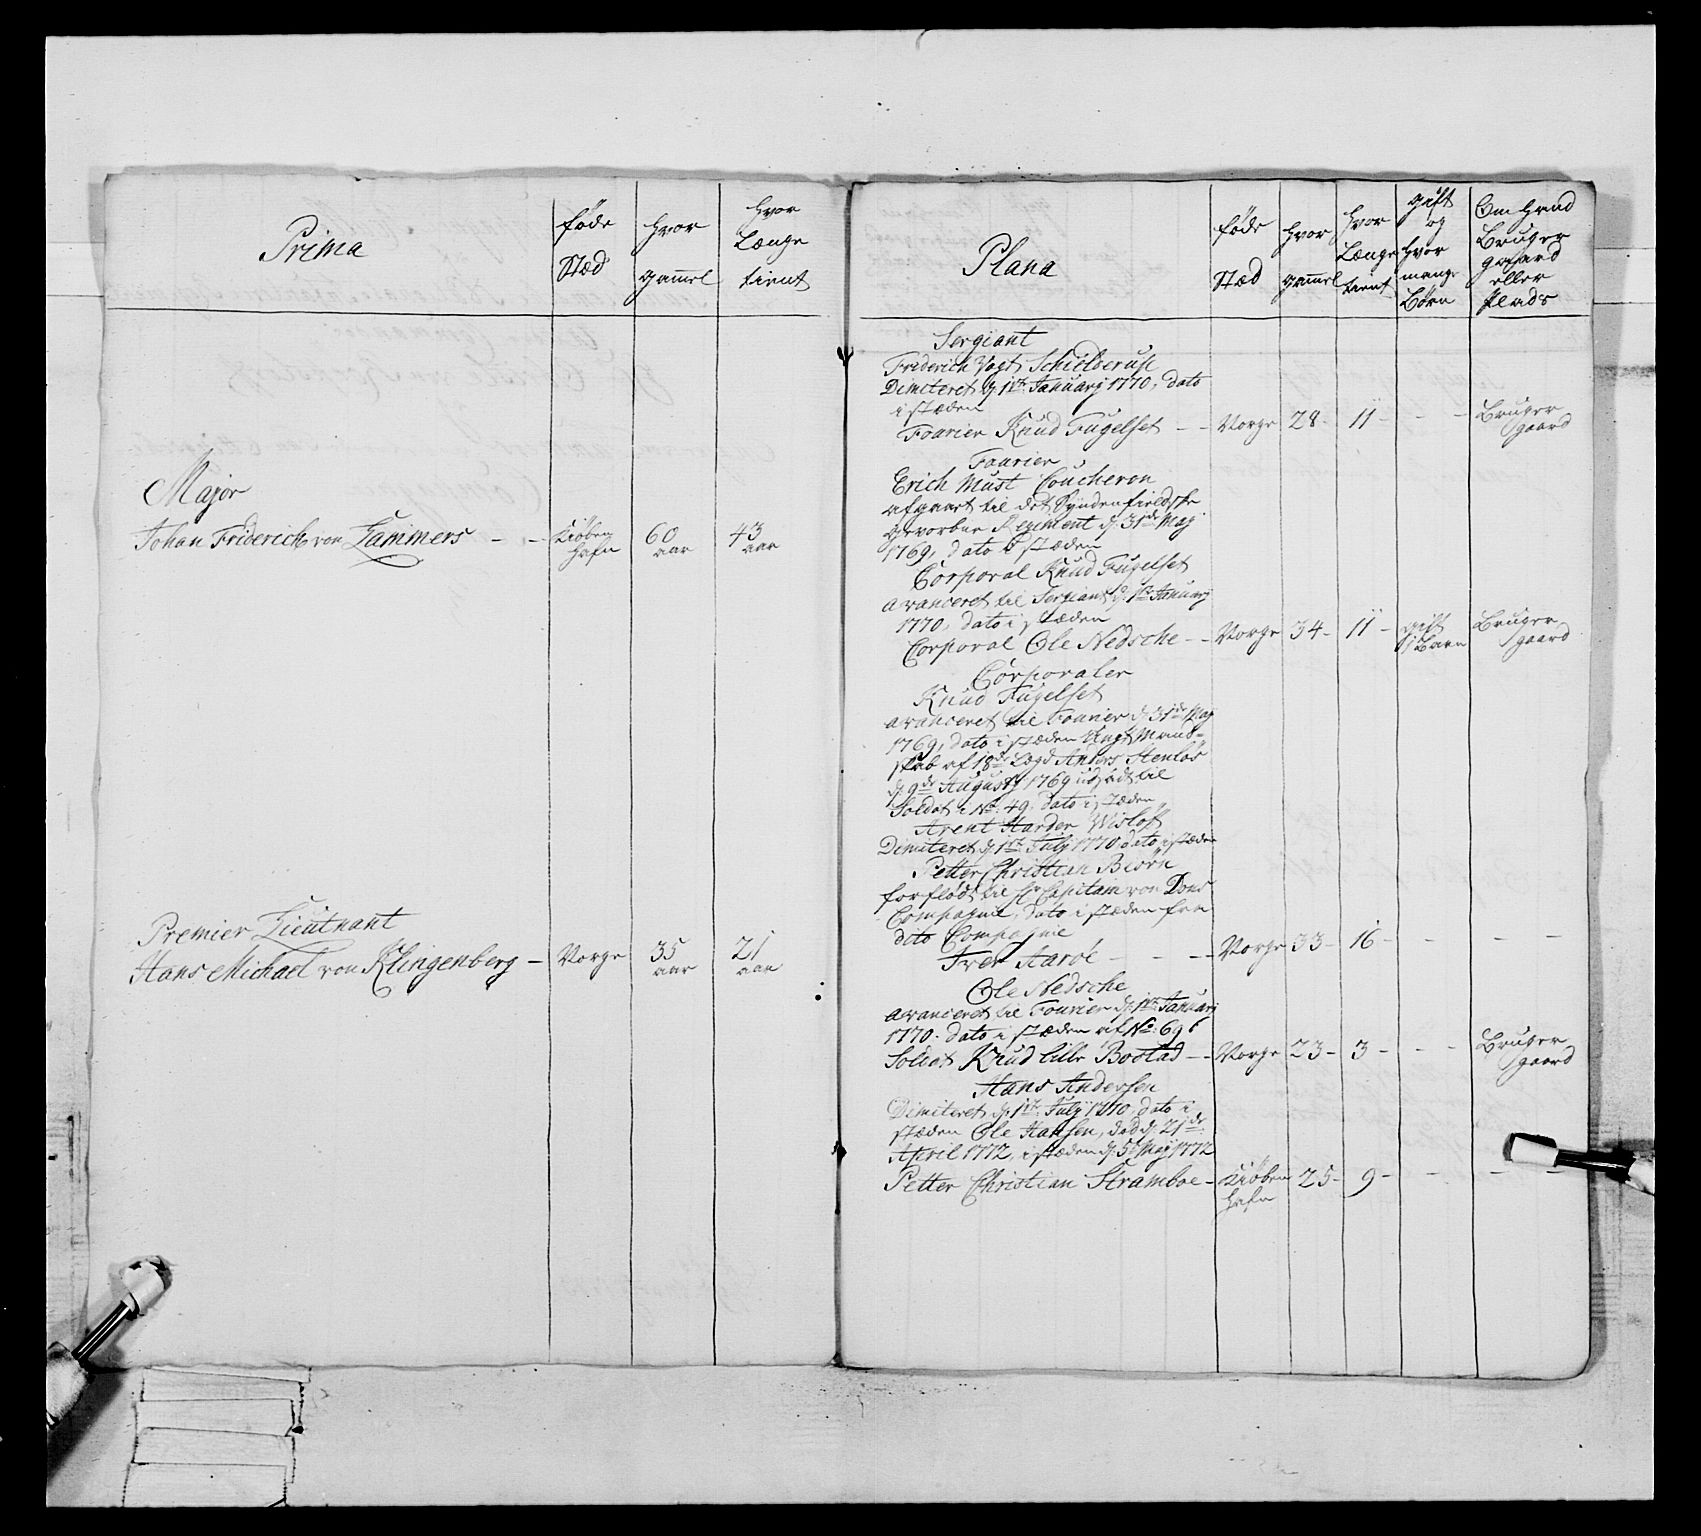 Prima
føde
Stæd
Hvor
gamel
Hvor
Længe
tient
Major
Johan Friderich von Lammers - - Kiøben 60 43
hafn aar aar
Premier Lieutnant
Hans Michael von Klingenberg - Norge 35 21
aar aar
Plana
føde
Stæd
Hvor
gamel
Hvor
Længe
tient
gift
og
Hvor
mange
Børn
Om Hand
Bruger
gaard
eller
Plads
Sergiant
Friderich Vogt Schielderup
Dimiteret d: 1te Januarj 1770, dato
i stæden
Fourier Knud Fugelset - - Norge 28 - 11 - - - Bruger
gaard
Fourier
Erich Must Coucheron
afgaaet til det Syndenfieldske
gevorbne Regiment d: 31de Maj
1769, dato i stæden
Corporal Knud Fugelset
avanceret til Sergiant d: 1te Januarj
1770, dato i stæden
Corporal Ole Nedsche - - Norge 34 - 11 - gift Bruger
1 Barn gaard
Corporaler
Knud Fugelset
avanceret til Fourier d: 31de Maj
1769, dato i stæden Ungt Mand-
skab af 18de Lægd Anders Stenløs
d: 9de Augustj 1769 udsadt til
Soldat i No: 49, dato i stæden
Arent Harder Wisløff
Dimiteret d: 1te July 1770 dato i stæden
Petter Christian Biørn
forflødt til Hr Capitain von Dons
Compagnie, dato i stæden fra
dito Compagnie
Iver Aarøe - - - - Norge 33 - 16 - - - -
Ole Nedsche
avanceret til Fourier d: 1te Januarj
1770. dato i stæden af No: 69
Soldat Knud Lille Bostad - - Norge 23 - 3 - - - Bruger
gaard
Hans Andersen
Dimiteret d: 1te July 1770, dato i
stæden Ole Hansen, død d: 21de
April 1772, i stæden d: 5t Maj 1772
Petter Christian Stramboe - Kiøben 25 - 9 - - - -
hafn